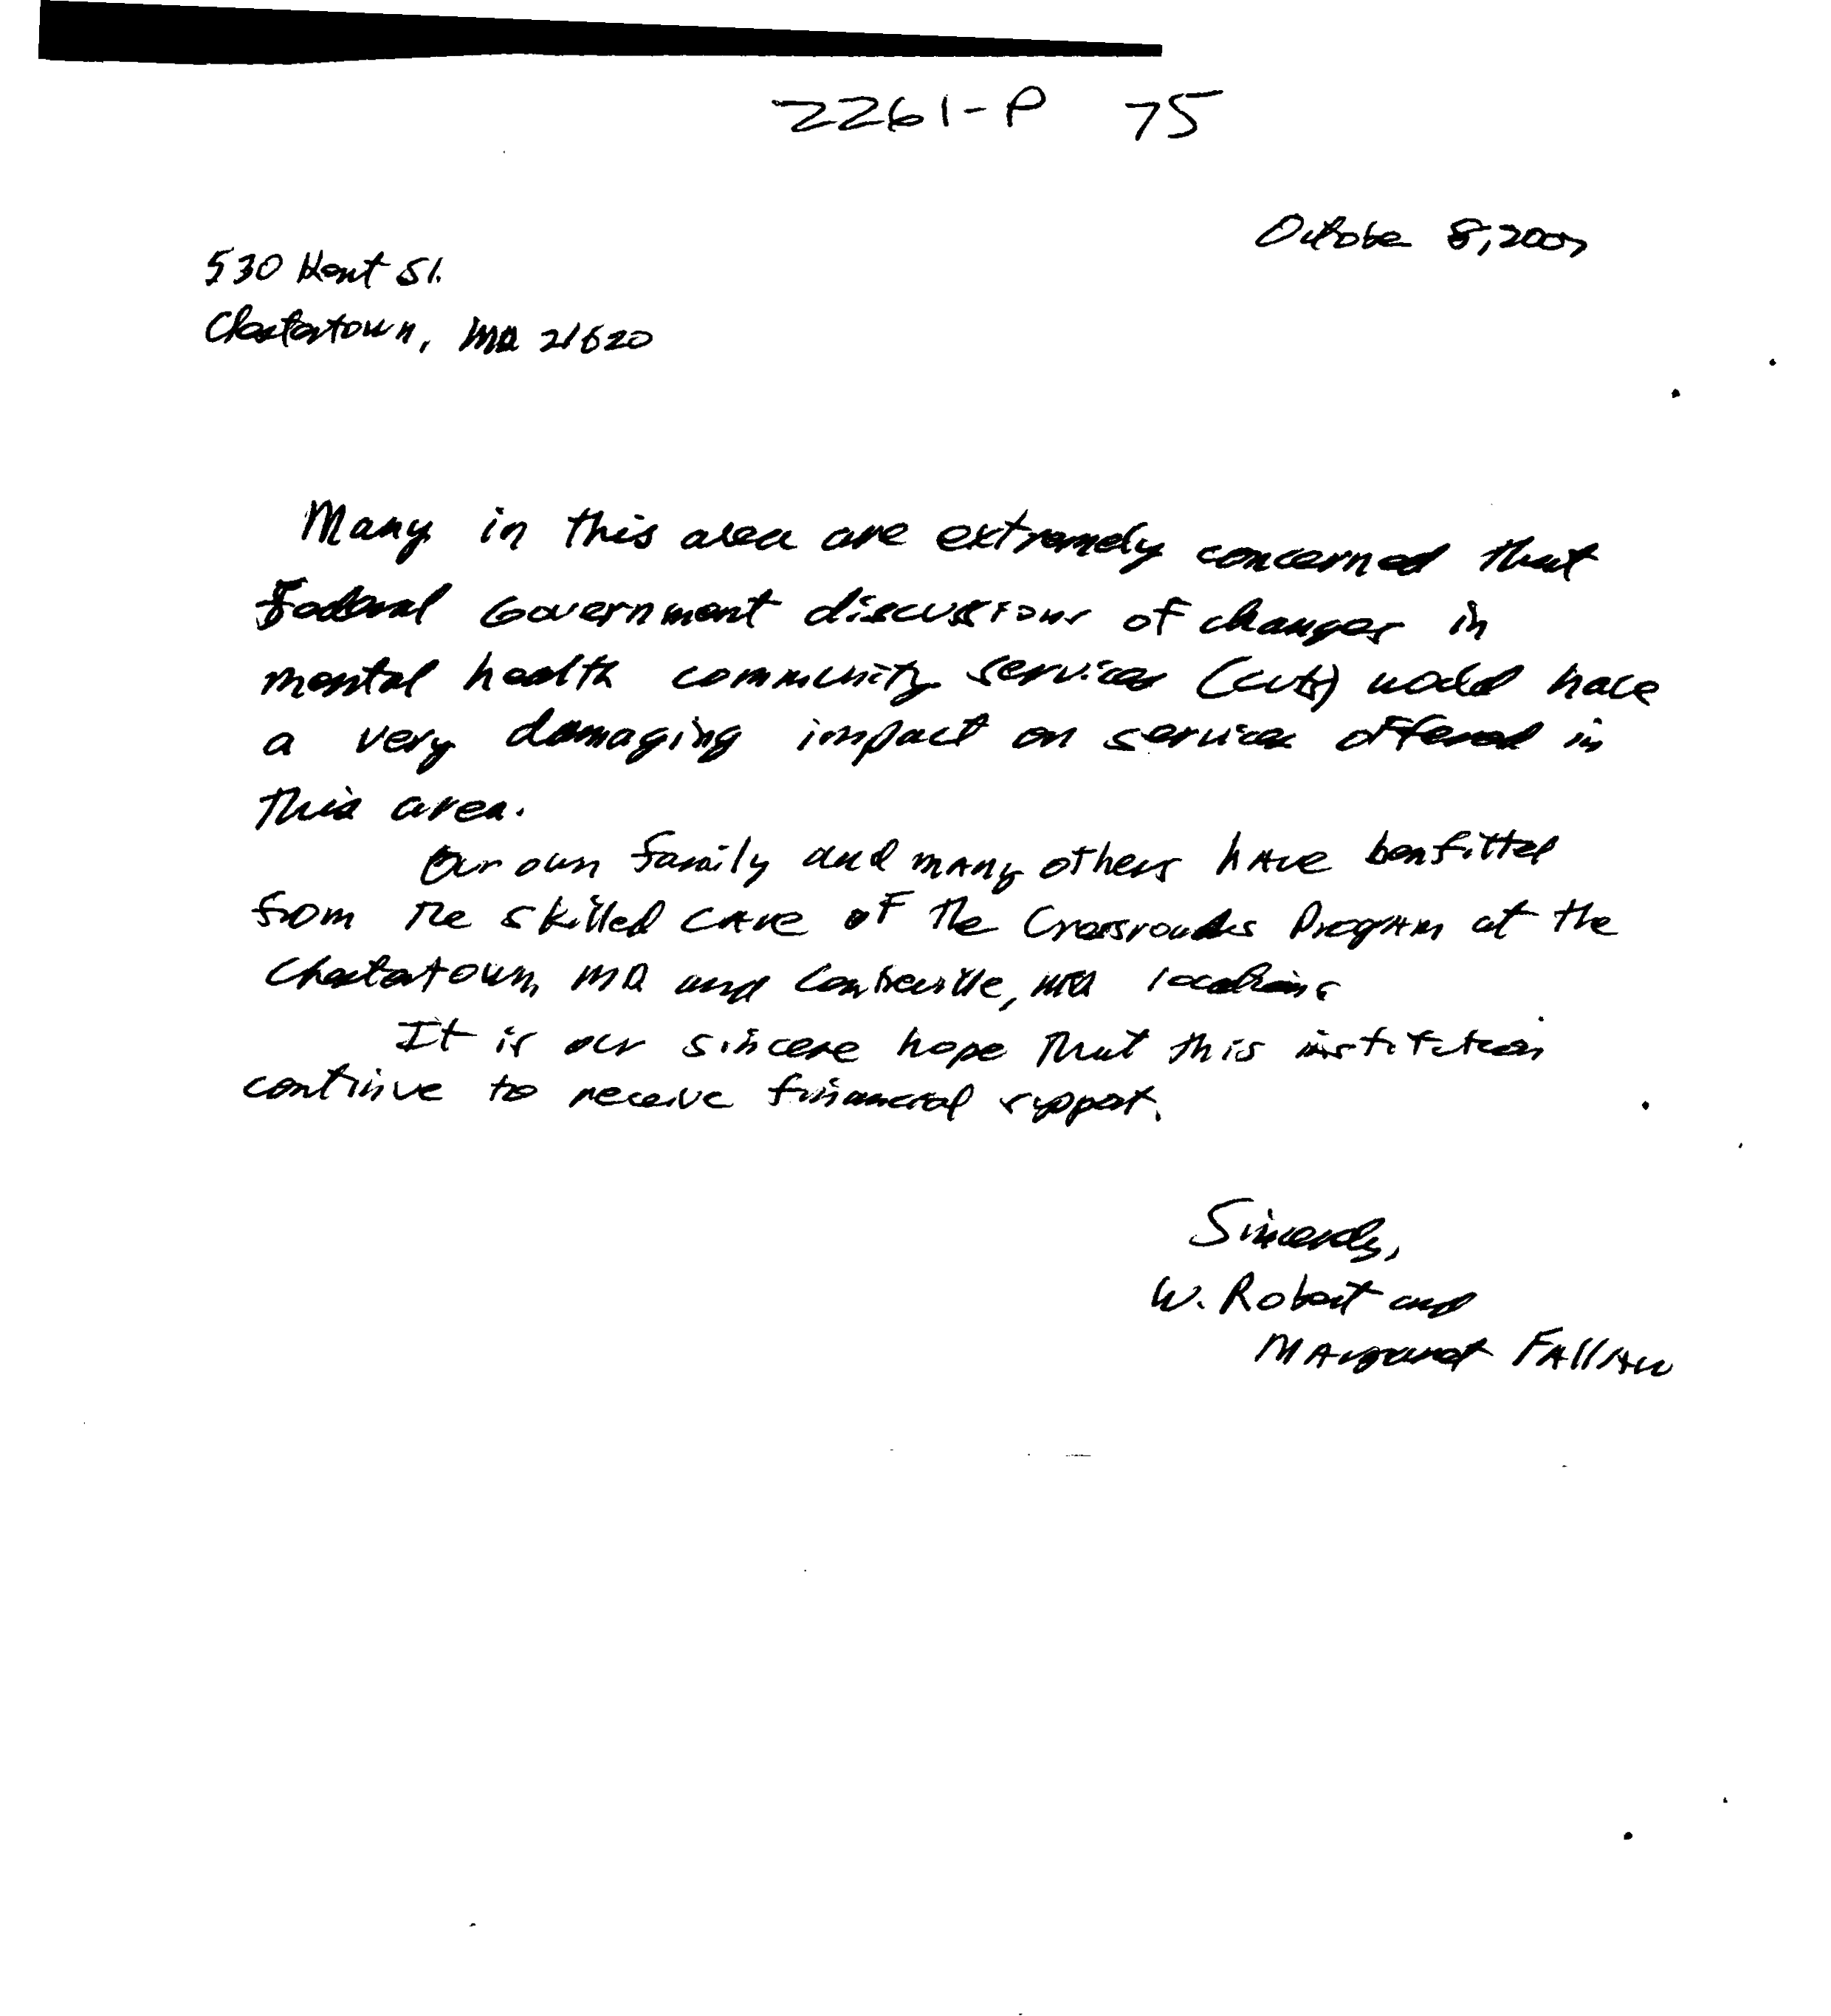 2261-P 75
October 8, 2007
530 Kent St.
Chestertown, MD 21620
Many in this area are extremely concerned that
Federal Government discussions of changes in
mental health community services (cuts) would have
a very damaging impact on services offered in
this area.
Our own family and many others have benfitted
from the skilled care of the Crossroads Program at the
Chestertown, MD and Centreville, MD locations
It is our sincere hope that this institution
continue to receive financial support.
Sincerely,
W. Robert and
Margaret Fallaw